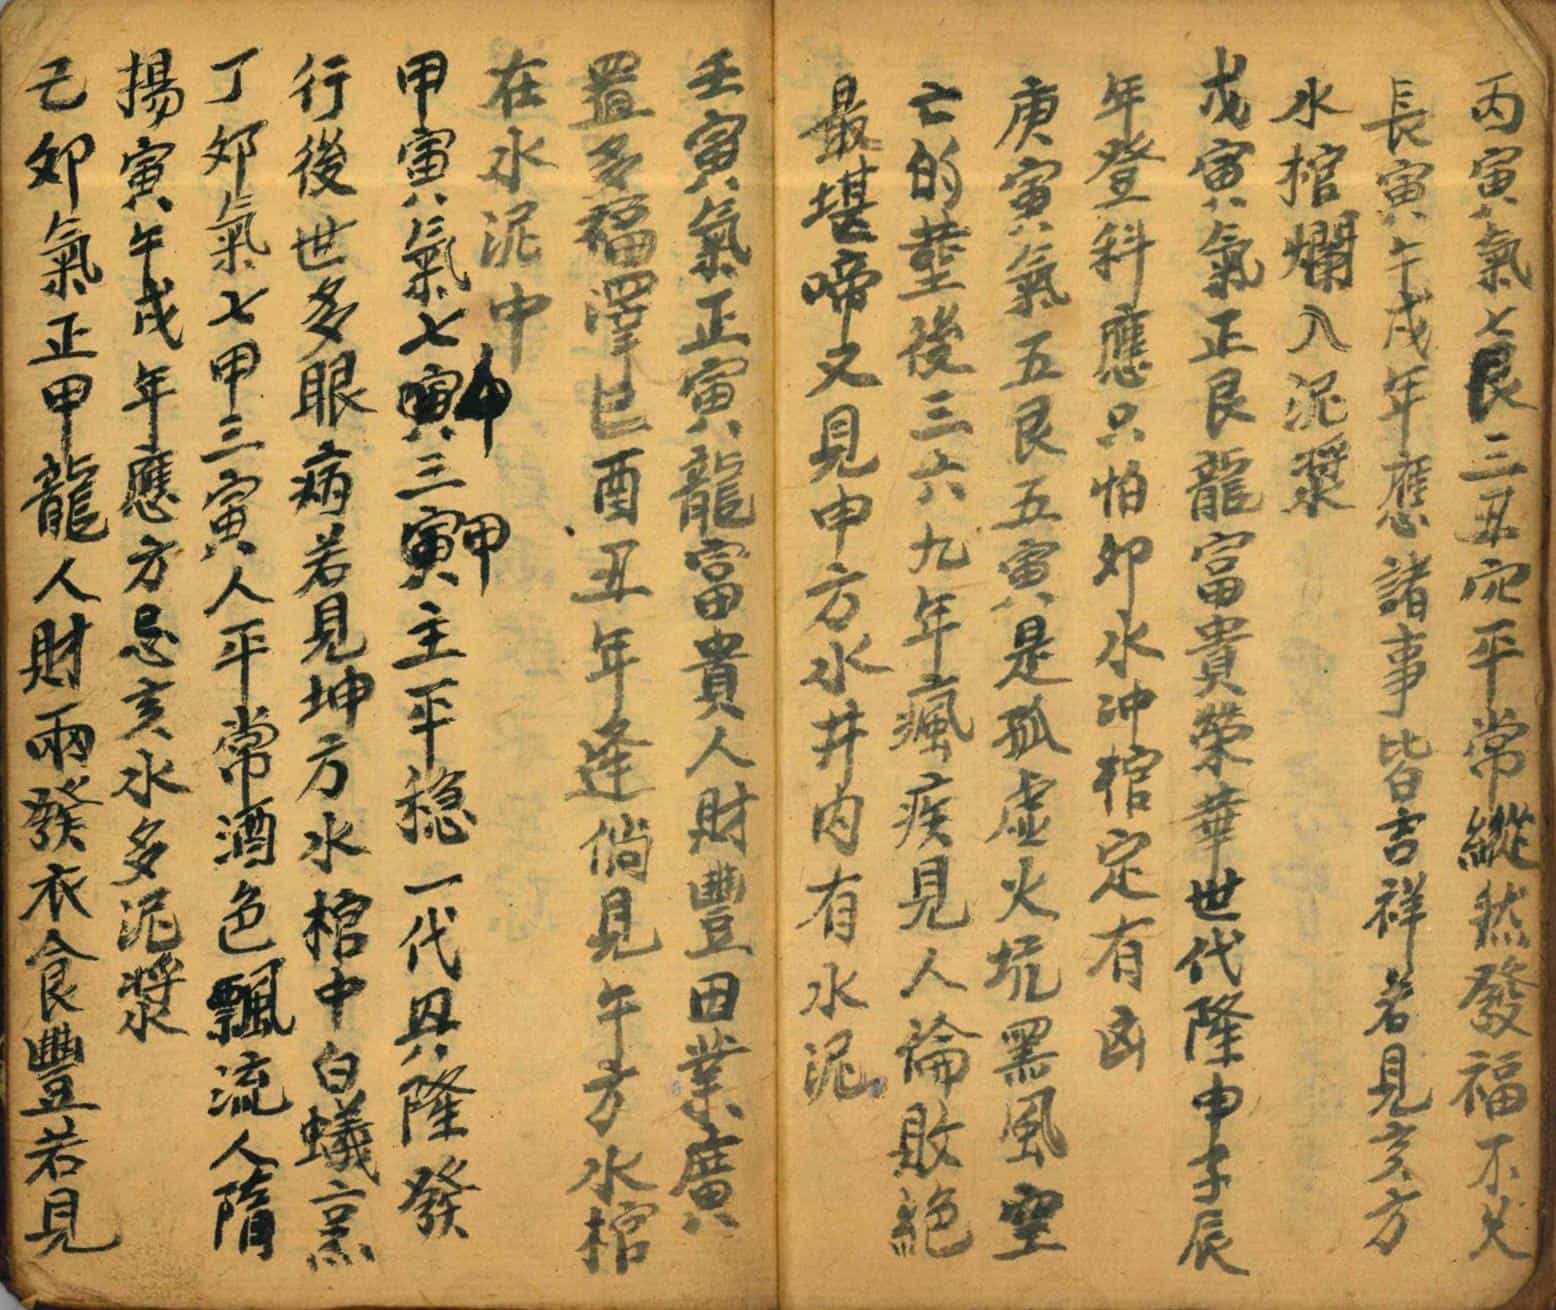 丙寅氣七艮三丑穴平常縱然發福不久
長寅午戌年應諸事皆吉祥若見亥方
水棺爛入泥漿
戊寅氣正艮龍富貴榮華世代隆申子辰
年登科應只怕卯水冲棺定有凶
庚寅氣五艮五寅是孤虛火坑黑風空
亡的塟後三六九年瘋疾見人倫敗絕
最堪啼又見申方水井内有水泥
壬寅氣正寅龍富貴人財豐田業廣
置多福澤巳酉丑年逢倘見午方水棺
在水泥中
甲寅氣七甲三甲主平稳一代興隆發
行後世多眼病若見坤方水棺中白蟻烹
丁卯氣七甲三寅人平常酒色飄流人隋
揚寅午戌年應方忌亥水多泥漿
己卯氣正甲龍人財兩發衣食豐若見